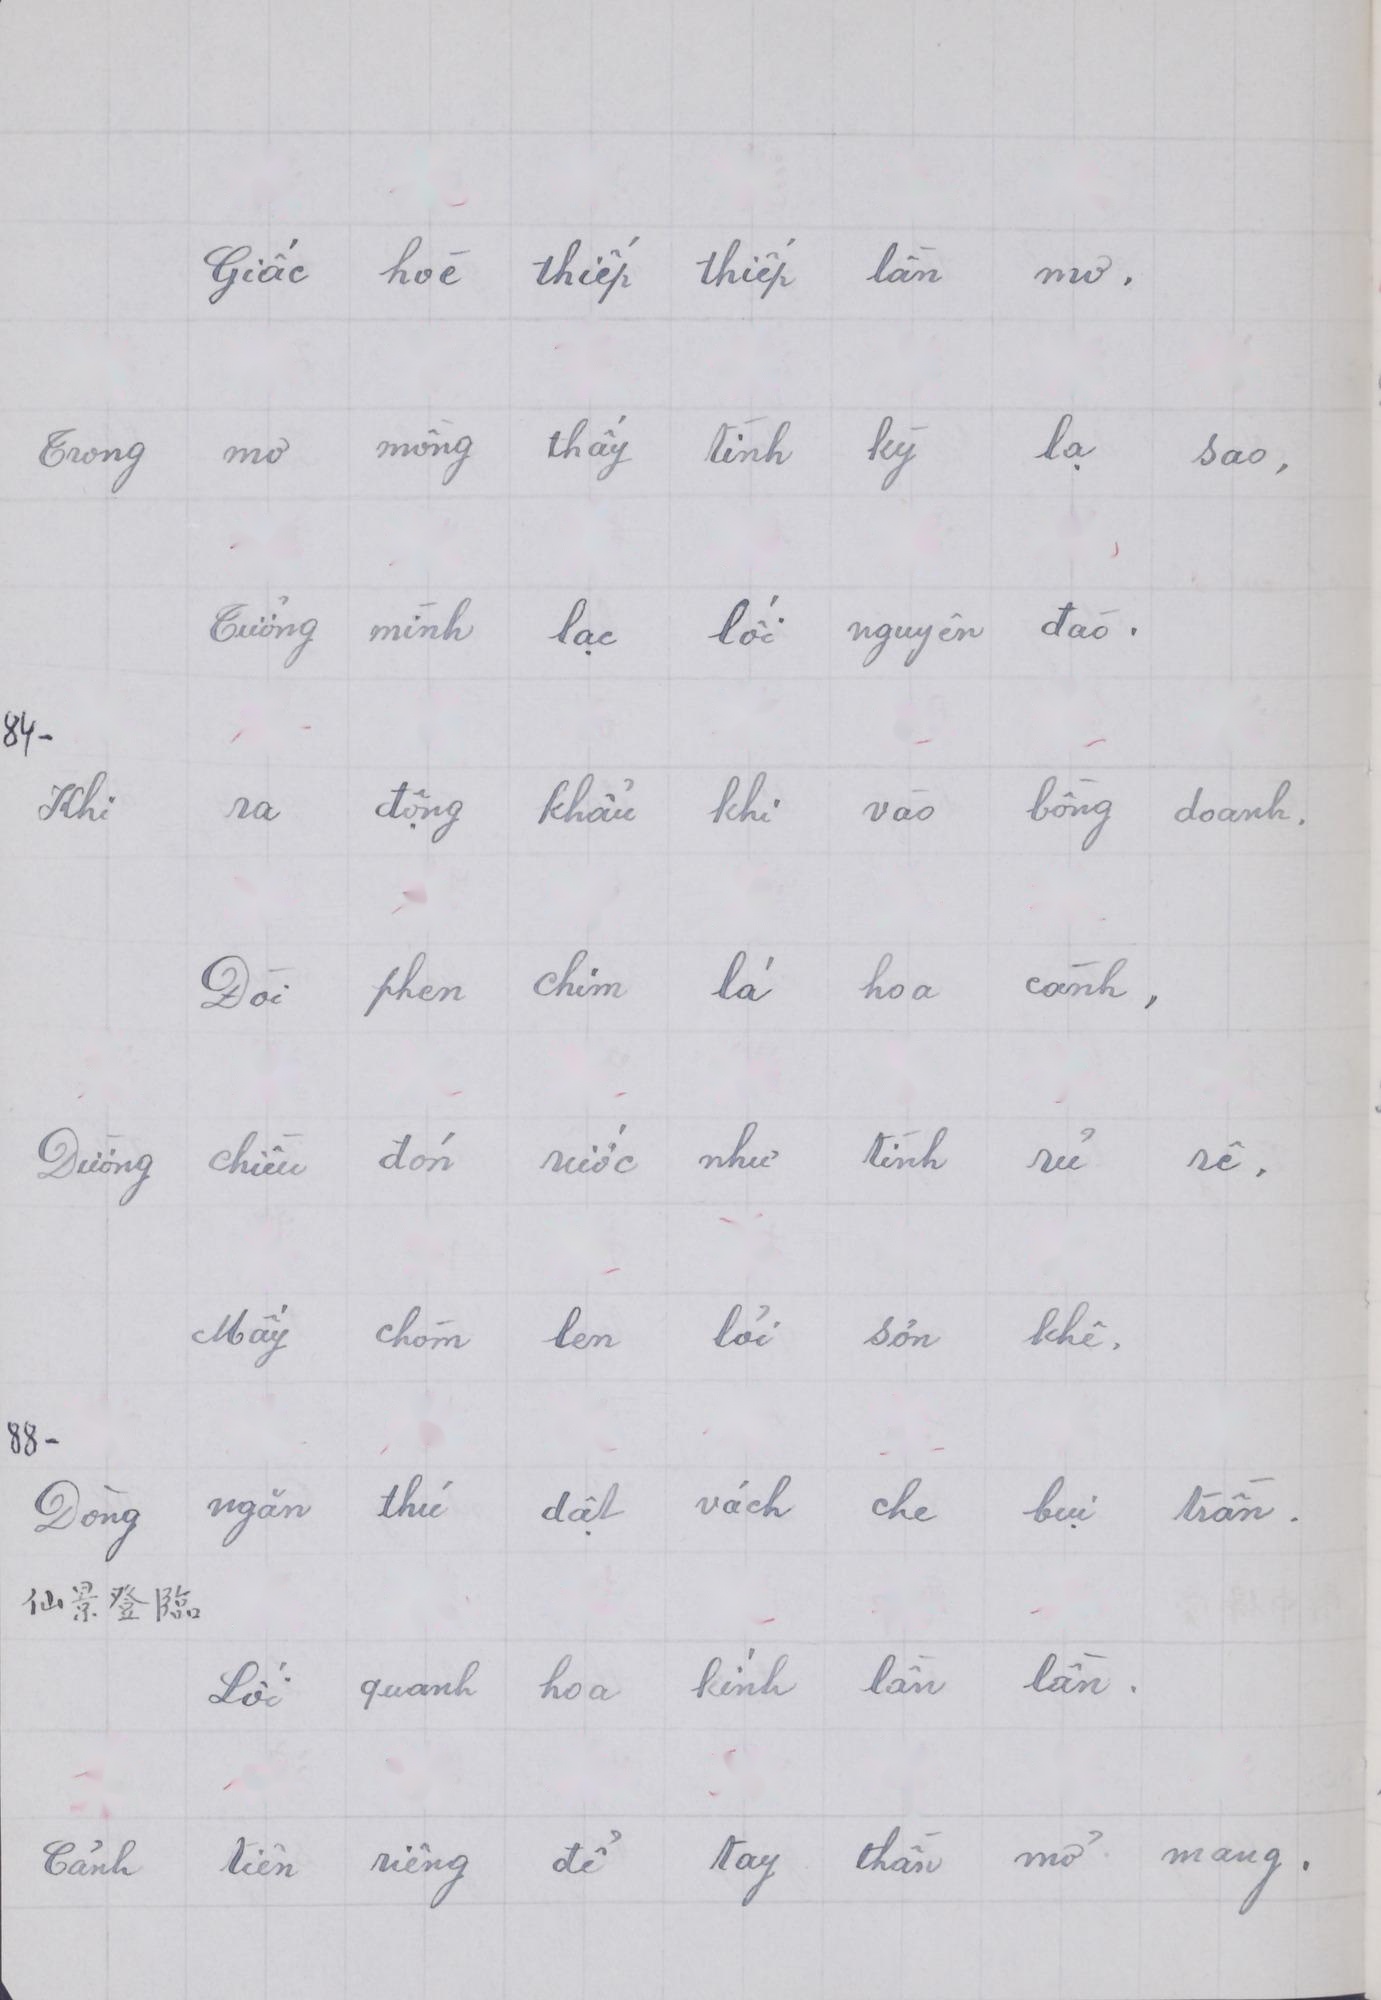 Giấc hoè thiếp thiếp lần mơ.
Trong mơ mòng thấy tình kỳ lạ sao,
Tưởng mình lạc lối nguyên đào.
84-
Khi ra động khẩu khi vào bồng doanh.
Đòi phen chim lá hoa cành,
Dường chiều đón rước như tình rủ rê.
Mấy chòm len lỏi sơn khê.
88-
Dòng ngăn thú dật vách che bụi trần.
仙景登臨
Lối quanh hoa kính lần lần.
Cảnh tiên riêng để tay thần mở mang.